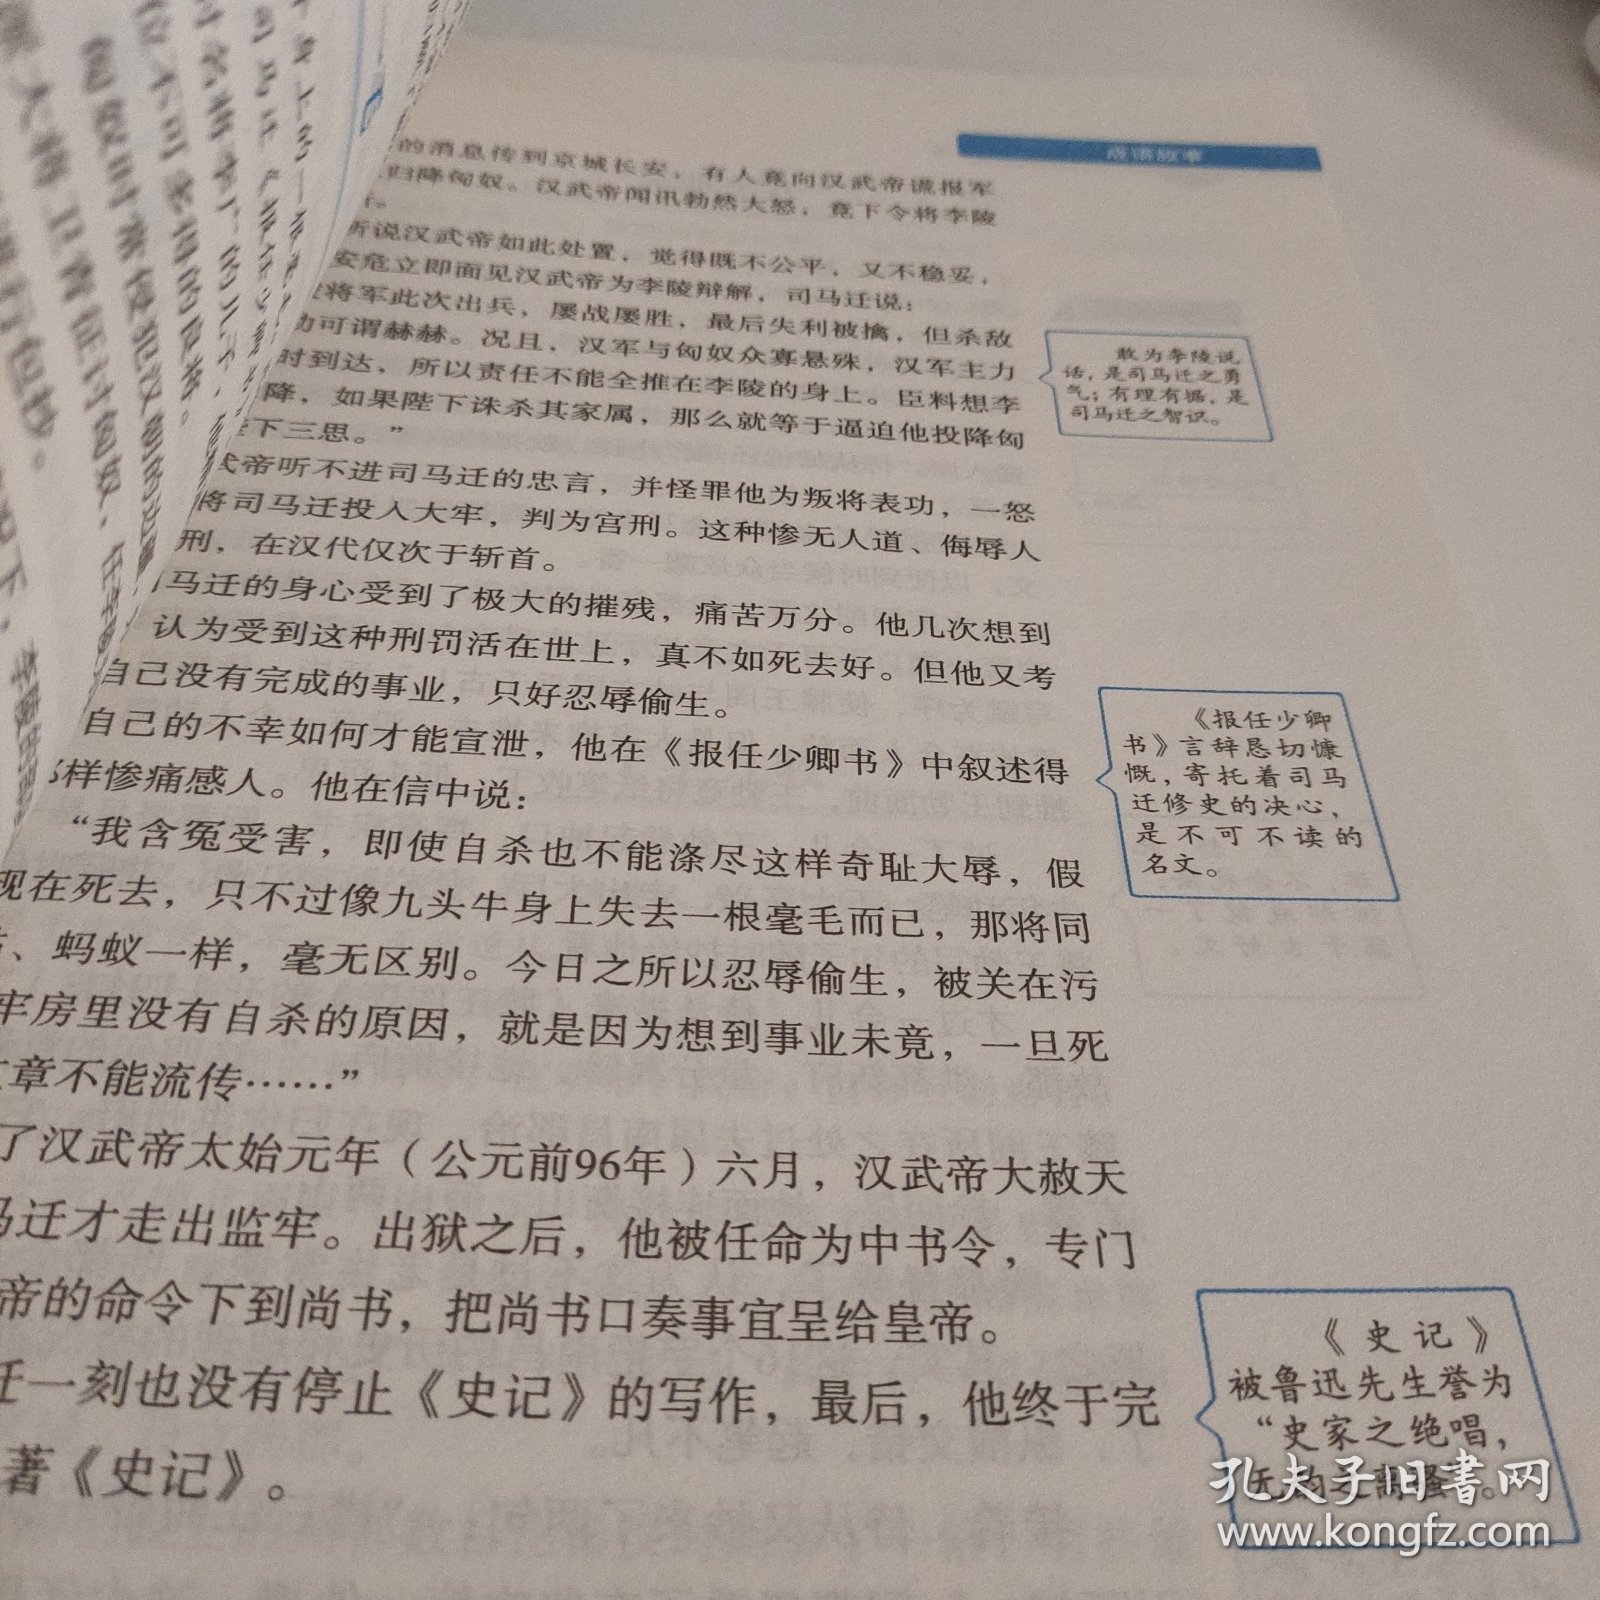 成语故事
的消息传到京城长安，有人竟向汉武帝谎报军
归降匈奴。汉武帝闻讯勃然大怒，竟下令将李陵
听说汉武帝如此处置，觉得既不公平，又不稳妥，
安危立即面见汉武帝为李陵辩解，司马迁说：
将军此次出兵，屡战屡胜，最后失利被擒，但杀敌
功可谓赫赫。况且，汉军与匈奴众寡悬殊，汉军主力
时到达，所以责任不能全推在李陵的身上。臣料想李
降，如果陛下诛杀其家属，那么就等于逼迫他投降匈
下三思。”
武帝听不进司马迁的忠言，并怪罪他为叛将表功，一怒
将司马迁投入大牢，判为宫刑。这种惨无人道、侮辱人
刑，在汉代仅次于斩首。
马迁的身心受到了极大的摧残，痛苦万分。他几次想到
认为受到这种刑罚活在世上，真不如死去好。但他又考
自己没有完成的事业，只好忍辱偷生。
自己的不幸如何才能宣泄，他在《报任少卿书》中叙述得
样惨痛感人。他在信中说：
“我含冤受害，即使自杀也不能涤尽这样奇耻大辱，假
现在死去，只不过像九头牛身上失去一根毫毛而已，那将同
、蚂蚁一样，毫无区别。今日之所以忍辱偷生，被关在污
牢房里没有自杀的原因，就是因为想到事业未竟，一旦死
章不能流传……”
了汉武帝太始元年（公元前96年）六月，汉武帝大赦天
马迁才走出监牢。出狱之后，他被任命为中书令，专门
帝的命令下到尚书，把尚书口奏事宜呈给皇帝。
迁一刻也没有停止《史记》的写作，最后，他终于完
著《史记》。
敢为李陵说
话，是司马迁之勇
气；有理有据，是
司马迁之智识。
《报任少卿
书》言辞恳切慷
慨，寄托着司马
迁修史的决心，
是不可不读的
名文。
《史记》
被鲁迅先生誉为
“史家之绝唱，
无韵之离骚”。
孔夫子旧书网
www.kongfz.com